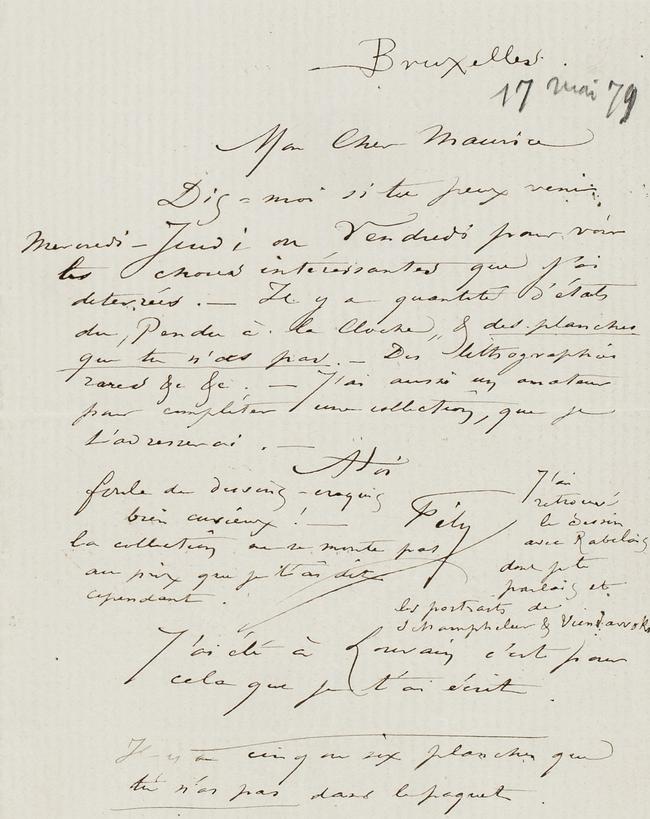 Bruxelles.
17 mai 79
Mon Cher Maurice
Dis-moi si tu peux venir
Mercredi – Jeudi ou Vendredi pour voir
les choses intéressantes que j'ai
déterrées. — Il y a quantité d'états
du „Pendu à la Cloche" & des planches
que tu n'as pas. — Des lithographies
rares &c &c. — J'ai aussi un amateur
pour compléter une collection, que je
t'adresserai. —
A toi
Fély
foule de dessins-croquis
bien curieux! —
la collection ne se monte pas
au prix que je t'ai dit
cependant.
J'ai
retrouvé
le dessin
avec Rabelais
dont je te
parlais et
les portraits de
Schampheleer &
J'ai été à Louvain c'est pour
cela que je t'ai écrit.
Il y a cinq ou six planches que
tu n'as pas dans le paquet.